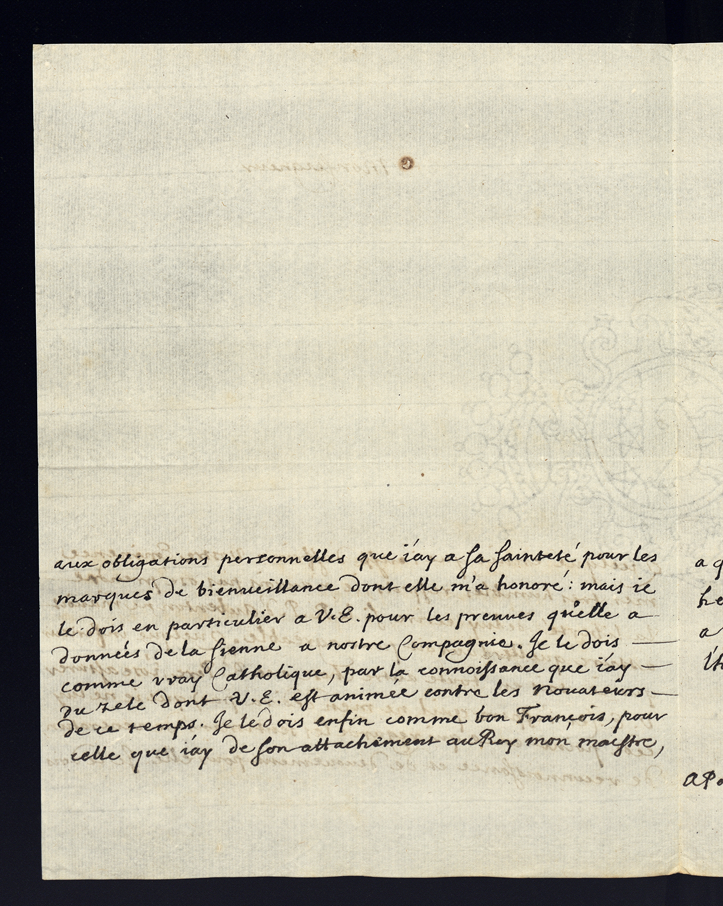 aux obligations personnelles que i'ay a sa sainteté pour les
marques de bienueillance dont elle m'a honoré: mais ie
le dois en particulier a V.E. pour les preuues qu'elle a
données de la sienne a nostre Compagnie. Je le dois —
comme vray Catholique, par la connoissance que i'ay —
du zele dont V.E. est animée contre les nouateurs —
de ce temps. Je le dois enfin comme bon François, pour
celle que i'ay de son attachement au Roy mon maistre,
a
he
a